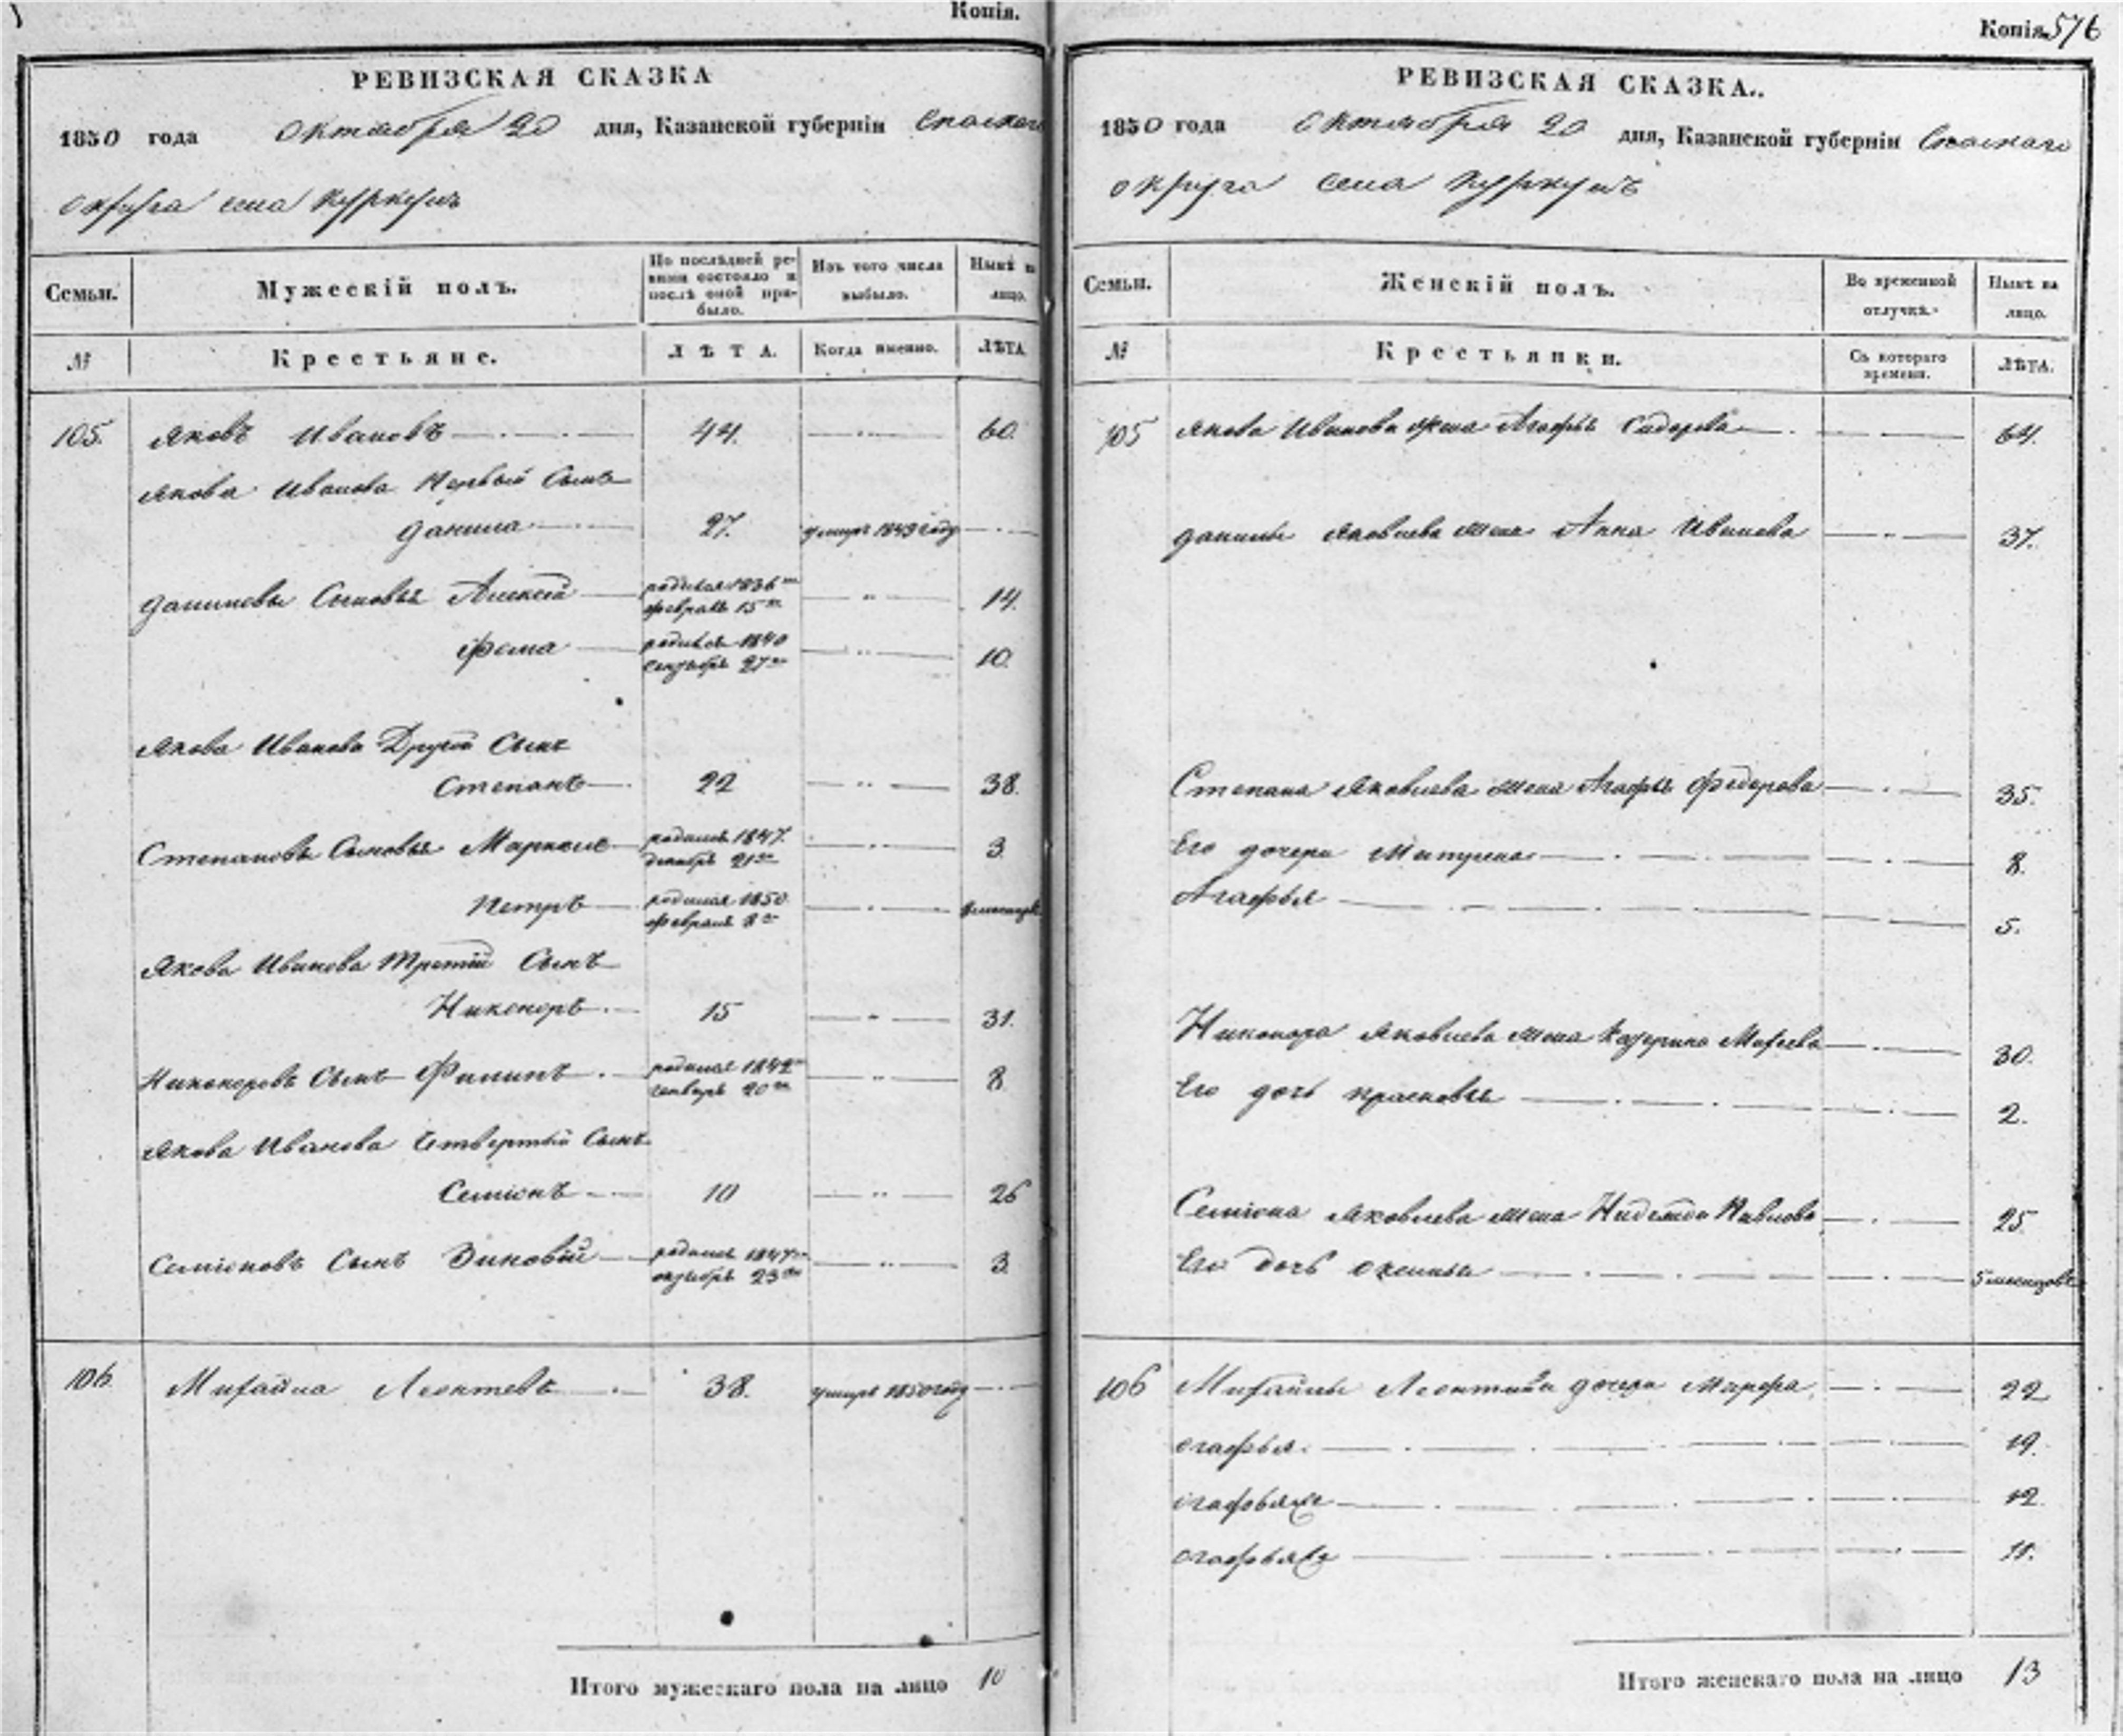 Копія.
РЕВИЗСКАЯ СКАЗКА
1850 года октября 20 дня, Казанской губерніи Спаскаго
округа села Куркуль
Семьи. Мужескій полъ. По послѣдней ревизіи состояло и послѣ оной прибыло. Изъ того числа выбыло. Нынѣ на лицо.
№ Крестьяне. ЛѢТА. Когда именно. ЛѢТА
105. Яковъ Ивановъ 44. 60.
Якова Иванова Первый Сынъ
Данила 27. умеръ 1849 году
Даниловы Сыновья Алексей родился 1836 февраля 15 14.
Фома родился 1840 сентябрь 27 10.
Якова Иванова Другой Сынъ
Степанъ 22 38.
Степановы Сыновья Маркелъ родился 1847. декабрь 21 3
Петръ родился 1850. февраля 8 8 месяцовъ
Якова Иванова Третій Сынъ
Никоноръ 15 31.
Никоноровъ Сынъ Филипъ родился 1842 генварь 20 8
Якова Иванова Четвертый Сынъ
Семіонъ 10 26
Семіоновъ Сынъ Зиновій родился 1847 октябрь 23 3
106. Михайла Леонтевъ 38. умеръ 1850 году
Итого мужескаго пола на лицо 10
Копія. 576
РЕВИЗСКАЯ СКАЗКА.
1850 года октября 20 дня, Казанской губерніи Спаскаго
округа села Куркуль
Семьи. Женскій полъ. Во временной отлучкѣ. Нынѣ на лицо.
№ Крестьянки. Съ котораго времени. ЛѢТА.
105 Якова Иванова жена Агафья Сидорова 64.
Данилы Яковлева жена Анна Иванова 37.
Степана Яковлева жена Агафья Федорова 35.
Его дочери 8.
Агафья 5.
Никонора Яковлева жена Катерина 30.
Его дочь Прасковья 2.
Семіона Яковлева жена Надежда Павлова 25.
Его дочь 5 месяцовъ
106 Михайлы Леонтьева дочери Марфа 22
огафья 19.
огафья 12.
огафья 11.
Итого женскаго пола на лицо 13